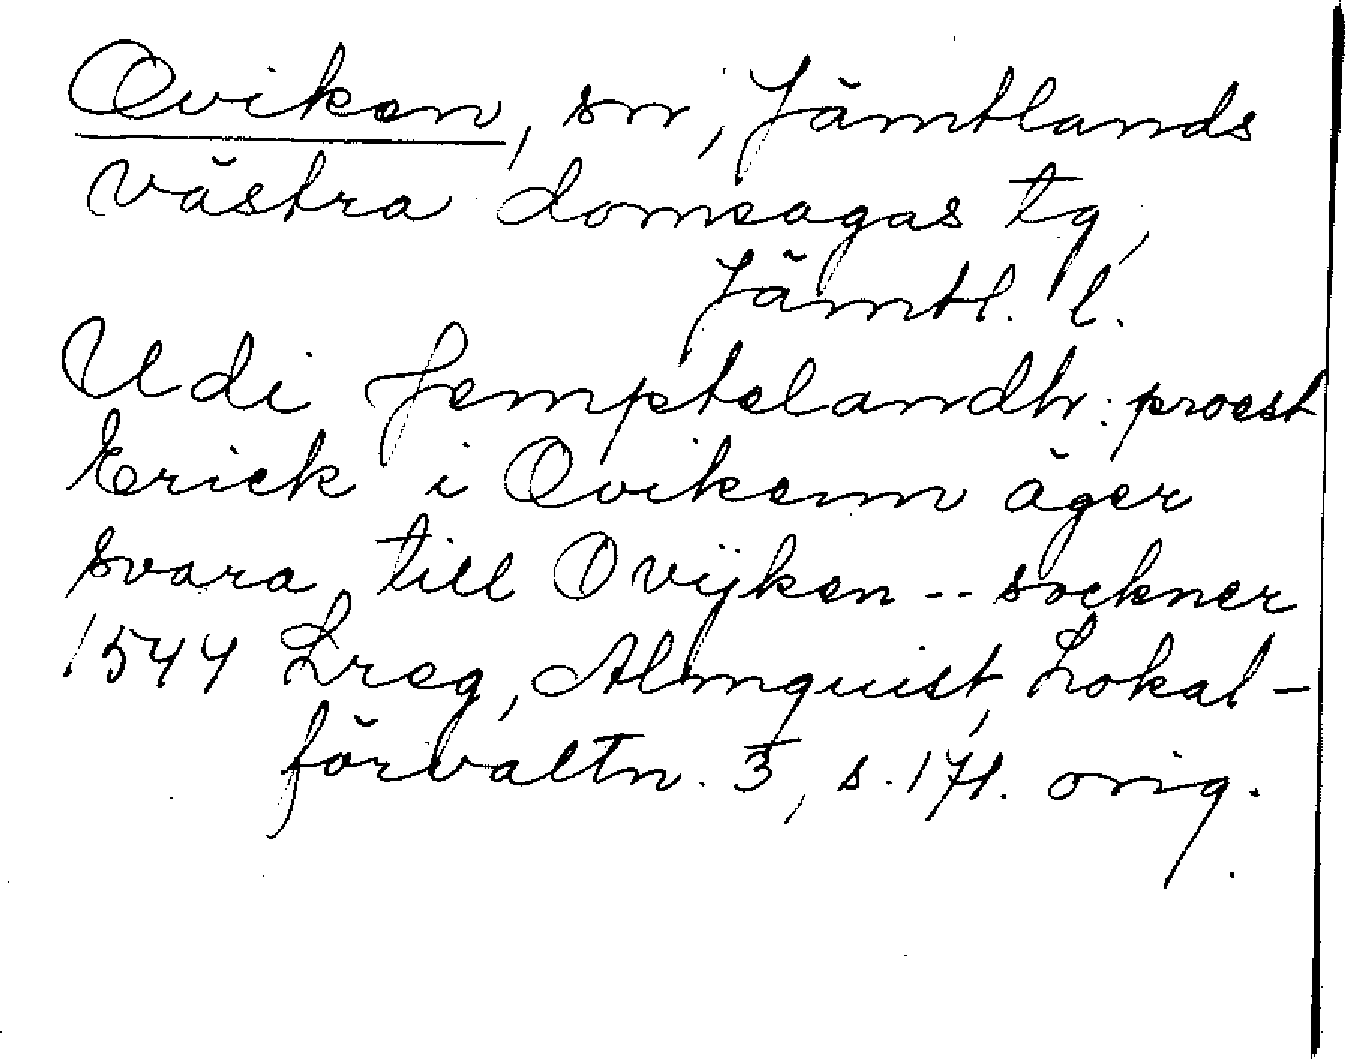 Oviken, sn, Jämtlands
västra domsagas tg,
Jämtl. l.
Udi Jemptelandh: proest
Erick i Ovikenn äger
svara till Ovijken -- sockner
1544 Lreg, Almquist, Lokal-
förvaltn. 3, s. 171. orig.